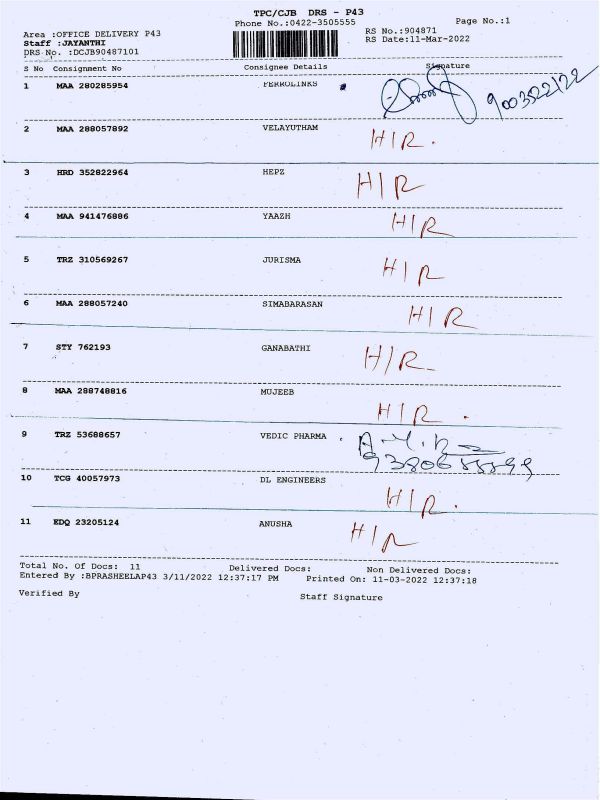 TPC/CJB DRS - P43
Phone No.:0422-3505555 Page No.:1
Area :OFFICE DELIVERY P43 RS No.:904871
Staff :JAYANTHI RS Date:11-Mar-2022
DRS No. :DCJB90487101
S No Consignment No Consignee Details Signature
1 MAA 280285954 FERROLINKS
2 MAA 288057892 VELAYUTHAM H/R.
3 HRD 352822964 HEPZ H/R
4 MAA 941476886 YAAZH H/R
5 TRZ 310569267 JURISMA H/R
6 MAA 288057240 SIMABARASAN H/R
7 STY 762193 GANABATHI H/R
8 MAA 288748816 MUJEEB H/R .
9 TRZ 53688657 VEDIC PHARMA
10 TCG 40057973 DL ENGINEERS H/R.
11 EDQ 23205124 ANUSHA H/R
Total No. Of Docs: 11 Delivered Docs: Non Delivered Docs:
Entered By :BPRASHEELAP43 3/11/2022 12:37:17 PM Printed On: 11-03-2022 12:37:18
Verified By Staff Signature